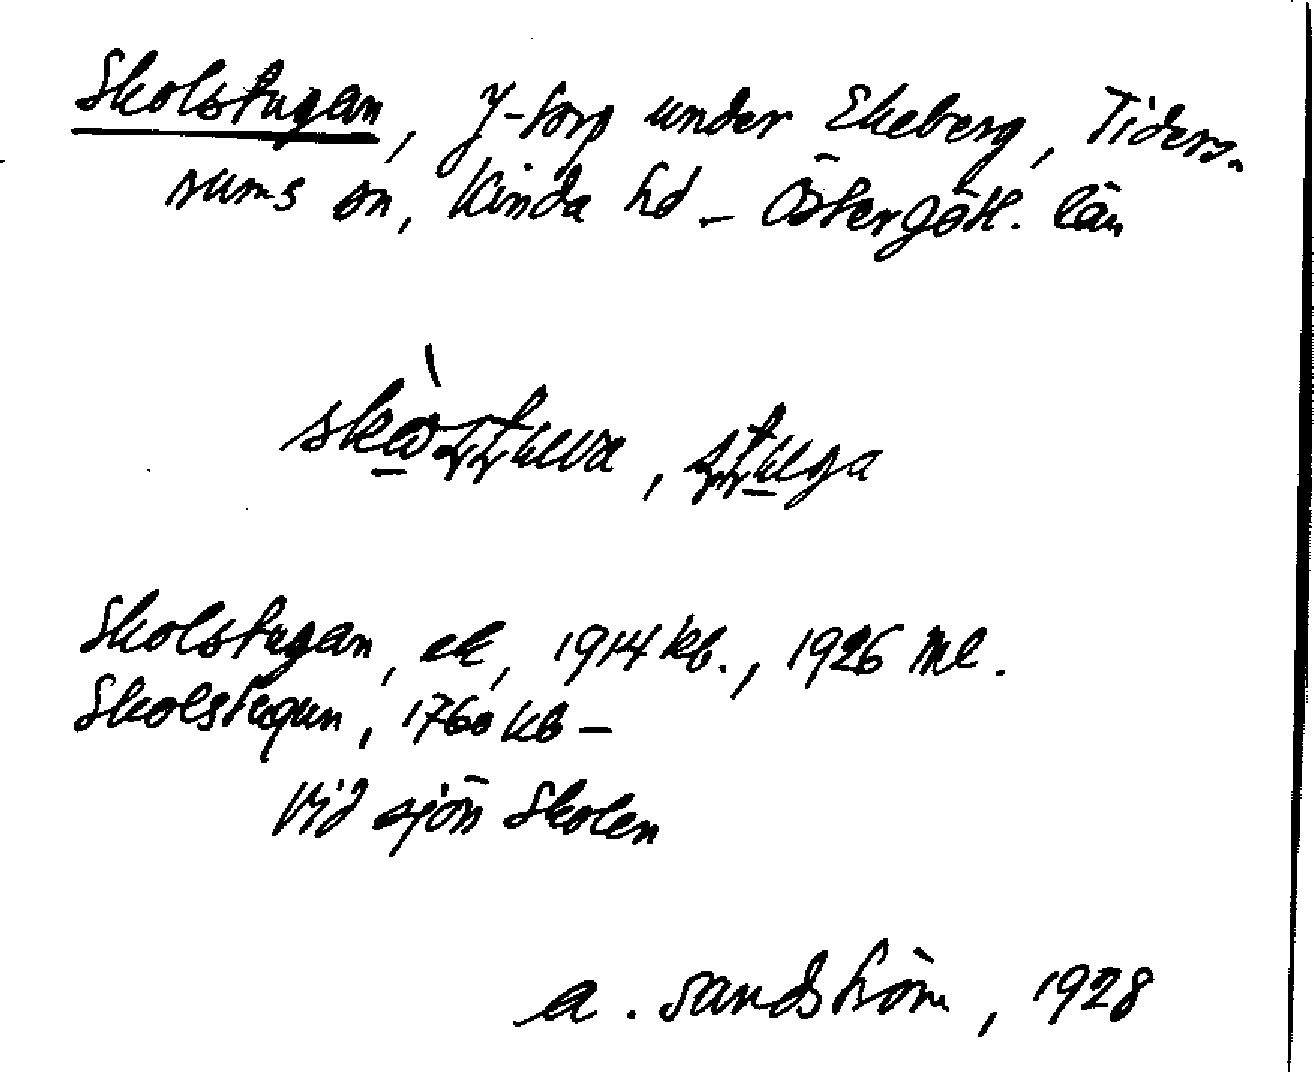 Skolstugan, y-torp under Ekeberg, Tiders-
rums sn, Kinda hd – Östergötl. län
Skolstugan, ek, 1914 kb., 1926 ml.
Skolstugun, 1760 kb –
Vid sjön Skolen
A. Sandström, 1928